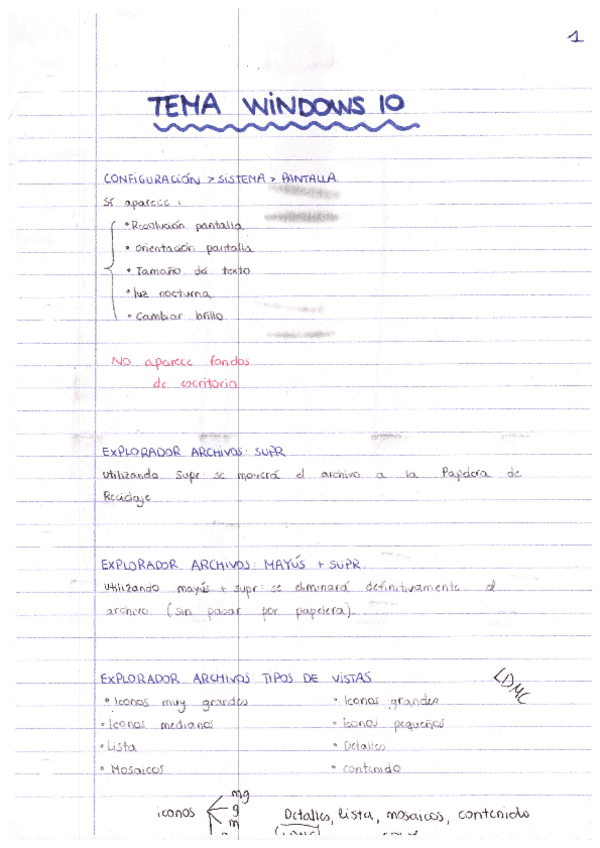 1
TEMA WINDOWS 10
CONFIGURACIÓN > SISTEMA > PANTALLA
SÍ aparece :
• Resolución pantalla
• Orientación pantalla
• Tamaño del texto
• luz nocturna
• Cambiar brillo
NO aparece fondos
de escritorio
EXPLORADOR ARCHIVOS: SUPR
Utilizando supr: se moverá el archivo a la Papelera de
Reciclaje
EXPLORADOR ARCHIVOS: MAYÚS + SUPR
Utilizando mayús + supr: se eliminará definitivamente el
archivo (sin pasar por papelera).
EXPLORADOR ARCHIVOS: TIPOS DE VISTAS
LDMC
• Iconos muy grandes • Iconos grandes
• Iconos medianos • iconos pequeños
• Lista • Detalles
• Mosaicos • contenido
mg
iconos g Detalles, lista, mosaicos, contenido
m